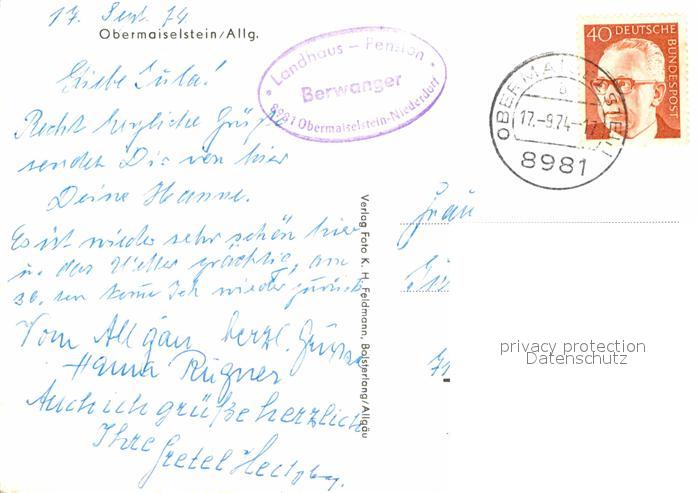 17. Sept. 74
Obermaiselstein/Allg.
Liebe Jula!
Recht herzliche Grüße
sendet Dir von hier
Deine Hanne.
Es ist wieder sehr schön hier
u. das Wetter prächtig, am
30. ten komme ich wieder zurück
Vom Allgäu herzl. Grüsse
Hanna Rügner
Auch ich grüße herzlich
Ihre
Gretel
Landhaus – Pension
Berwanger
8981 Obermaiselstein-Niederdorf
OBERMAISELSTEIN
17.-9.74-17
8981
40 DEUTSCHE
BUNDESPOST
Verlag Foto K. H. Feldmann, Bolsterlang/Allgäu
Frau
privacy protection
Datenschutz